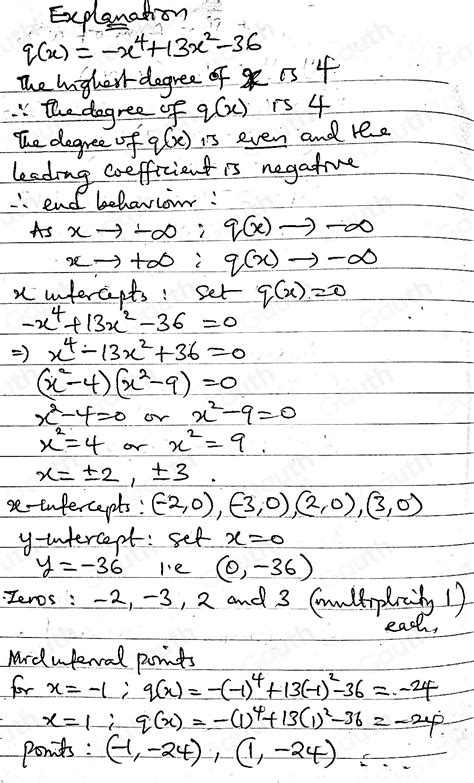 Explanation
q(x) = -x⁴+13x²-36
The highest degree of x is 4
∴ The degree of q(x) is 4
The degree of q(x) is even and the
leading coefficient is negative
∴ end behaviour :
As x → -∞ ; q(x) → -∞
x → +∞ ; q(x) → -∞
x intercepts : set q(x)=0
-x⁴+13x²-36 =0
⇒ x⁴-13x²+36=0
(x²-4)(x²-9) =0
x²-4=0 or x²-9=0
x²=4 or x²=9.
x= ±2, ±3.
x-intercepts : (-2,0), (-3,0), (2,0), (3,0)
y-intercept : set x=0
y=-36 i.e (0,-36)
Zeros : -2, -3, 2 and 3 (multiplicity 1)
each,
Mid interval points
for x=-1 ; q(x) = -(-1)⁴+13(-1)²-36 = -24
x=1 ; q(x) = -(1)⁴+13(1)²-36 = -24
points : (-1,-24), (1,-24) ...